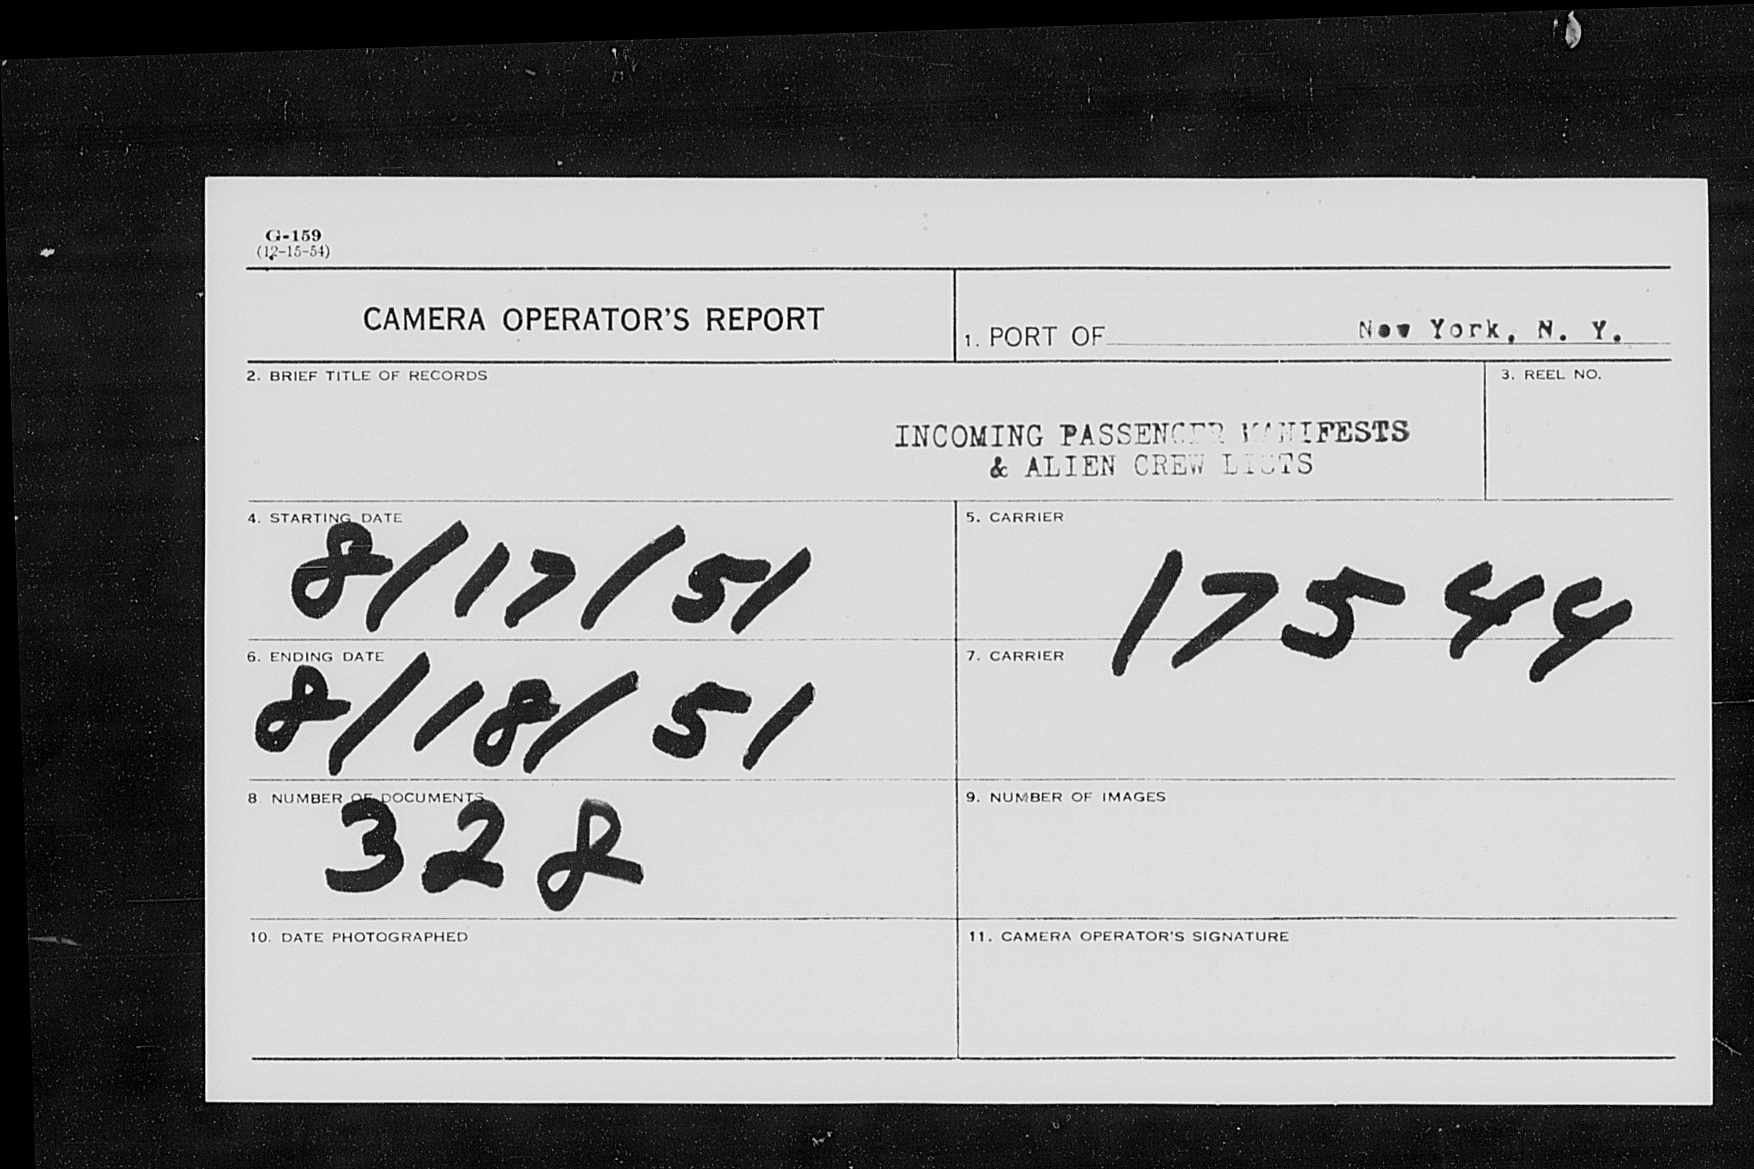 G-159
(12-15-54)
CAMERA OPERATOR'S REPORT
1. PORT OF New York, N. Y.
2. BRIEF TITLE OF RECORDS
3. REEL NO.
INCOMING PASSENGER MANIFESTS
& ALIEN CREW LISTS
4. STARTING DATE
8/17/51
5. CARRIER
17544
6. ENDING DATE
8/18/51
7. CARRIER
8 NUMBER OF DOCUMENTS
328
9. NUMBER OF IMAGES
10. DATE PHOTOGRAPHED
11. CAMERA OPERATOR'S SIGNATURE